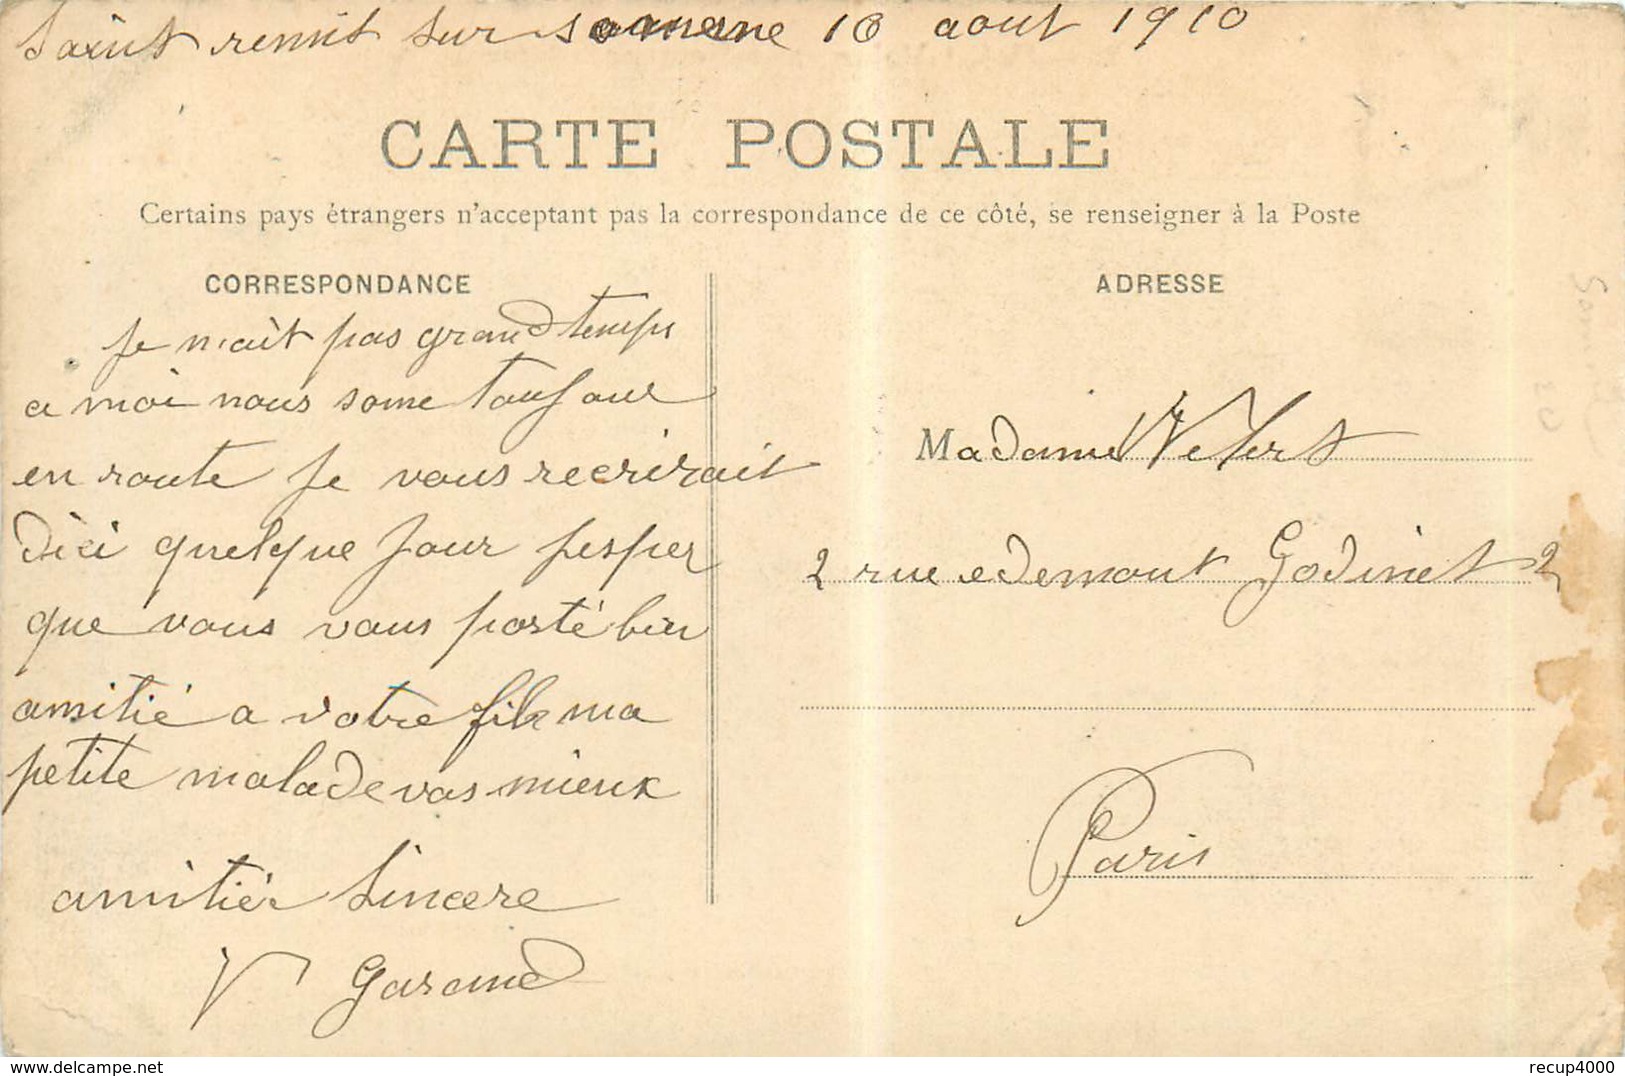 Saint remit sur 10 aout 1910
CARTE POSTALE
Certains pays étrangers n'acceptant pas la correspondance de ce côté, se renseigner à la Poste
CORRESPONDANCE
ADRESSE
Je n'ait pas grand temps
a moi nous some toujour
en route Je vous recrirait
dici quelque Jour jesper
que vous vous porté bien
amitié a votre fils ma
petite malade vas mieux
amitiér Sincere
V Garand
Madame
2 rue edemont Godinet 2
Paris
recup4000